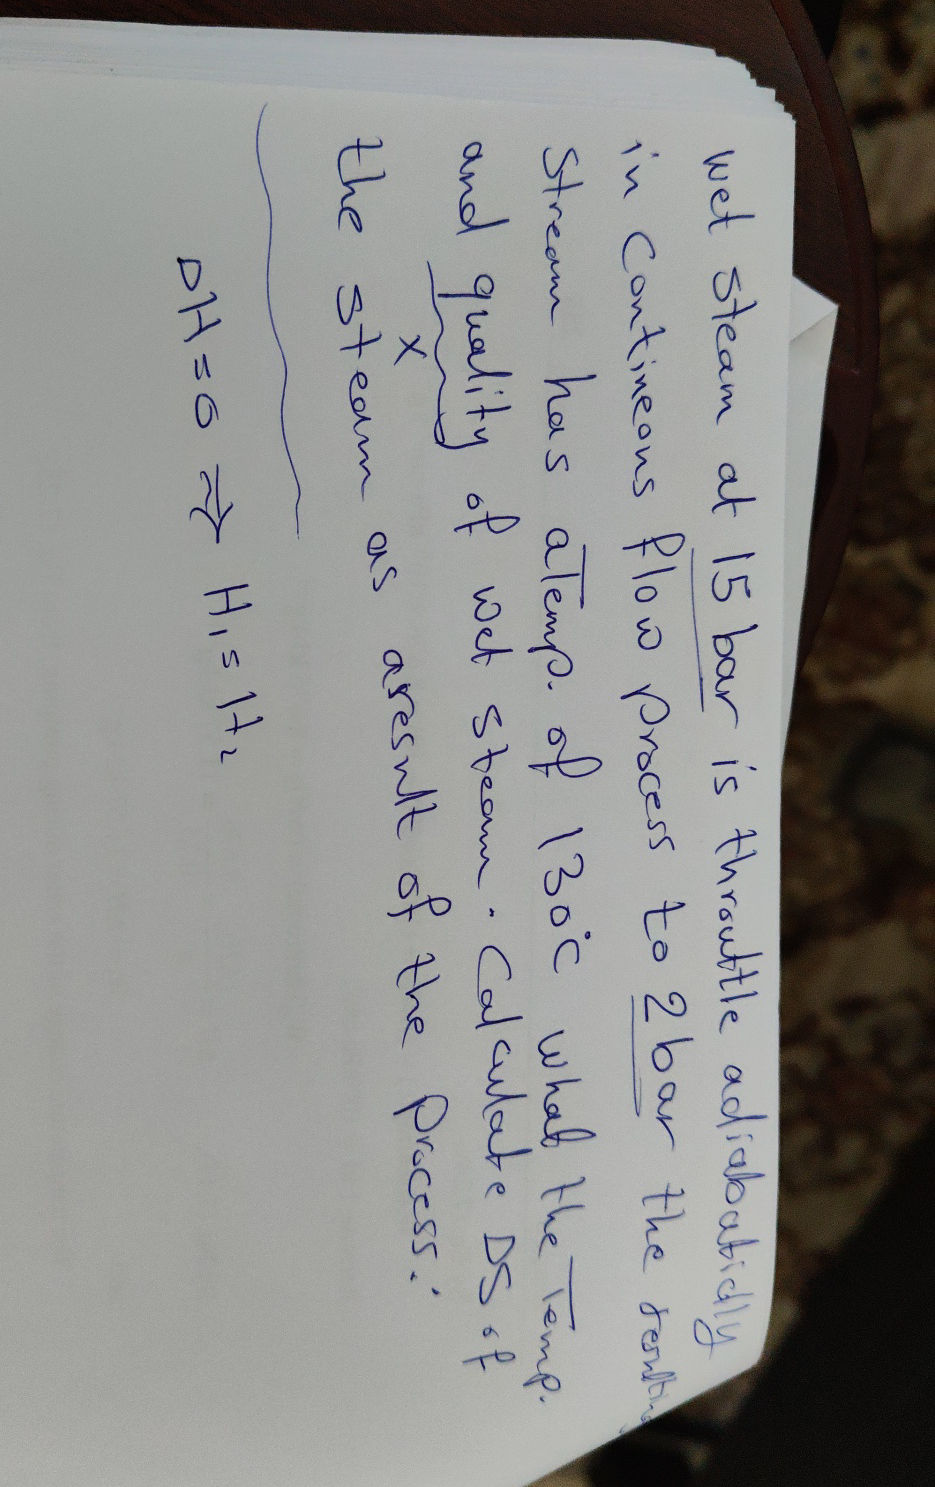 wet steam at 15 bar is throuttle adiabaticlly
in Contineons flow process to 2 bar the resulting
Stream has a Temp. of 130°C what the Temp.
and quality of wet steam. Calculate DS of
x
the steam as aresult of the process.
DH = 0 ⇒ H₁ = H₂